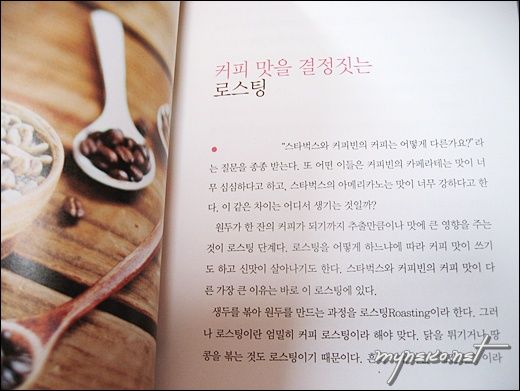 커피 맛을 결정짓는
로스팅
"스타벅스와 커피빈의 커피는 어떻게 다른가요?"라
는 질문을 종종 받는다. 또 어떤 이들은 커피빈의 카페라테는 맛이 너
무 심심하다고 하고, 스타벅스의 아메리카노는 맛이 너무 강하다고 한
다. 이 같은 차이는 어디서 생기는 것일까?
원두가 한 잔의 커피가 되기까지 추출만큼이나 맛에 큰 영향을 주는
것이 로스팅 단계다. 로스팅을 어떻게 하느냐에 따라 커피 맛이 쓰기
도 하고 신맛이 살아나기도 한다. 스타벅스와 커피빈의 커피 맛이 다
른 가장 큰 이유는 바로 이 로스팅에 있다.
생두를 볶아 원두를 만드는 과정을 로스팅Roasting이라 한다. 그러
나 로스팅이란 엄밀히 커피 로스팅이라 해야 맞다. 닭을 튀기거나 땅
콩을 볶는 것도 로스팅이기 때문이다. 이라
mynsko.net